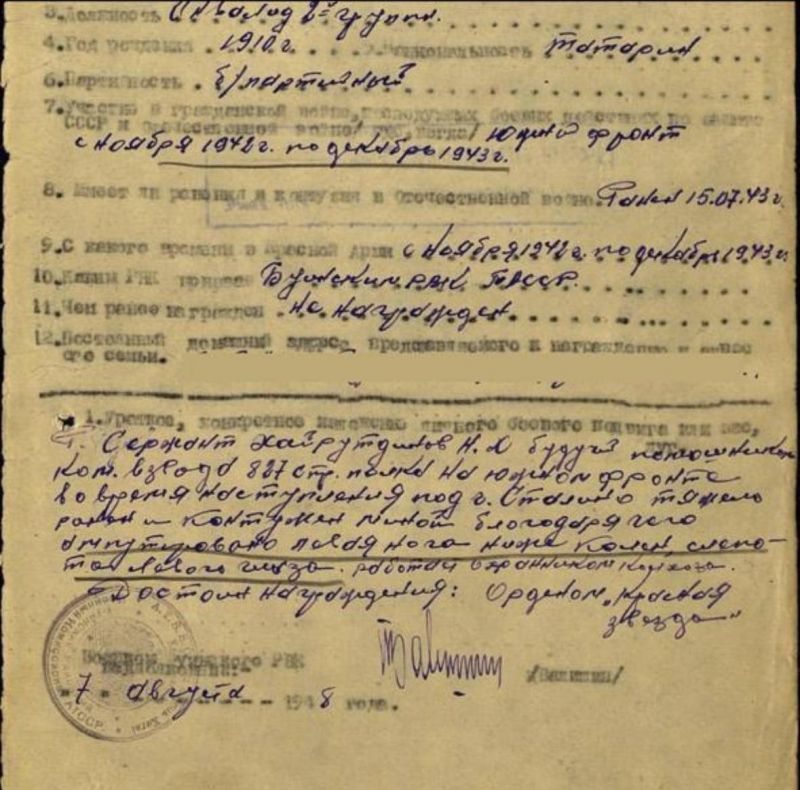 3. Должность Инвалид 2й групп.
4. Год рождения 1910 г. национальность татарин
6. Партийность б/партийный
7. Участие в гражданской войне, последующих боевых действиях по защите
СССР и отечественной войне Южный фронт
с ноября 1942 г. по декабрь 1943 г.
8. Имеет ли ранения и контузии в Отечественной войне Ранен 15.07.43 г.
9. С какого времени в Красной Армии с ноября 1942 г. по декабрь 1943 г.
10. Каким РВК призван Буинским РВК ТАССР.
11. Чем ранее награжден не награжден
12. Постоянный домашний адрес представляемого к награждению и адрес
его семьи.
1. Краткое, конкретное изложение личного боевого подвига или заслуг
Сержант Хайрутдинов Н. Х будучи помошником
ком. взвода 827 стр. полка на южном фронте
во время наступления под г. Сталино тяжело
ранен и контужен миной благодаря чего
ампутировано левая нога ниже колен, слепо-
та левого глаза. работает охранником колхоза.
Достоин награждения: Орденом „Красная
звезда"
Военком Буинского РВК
/Валишин/
"7" августа 1948 года.